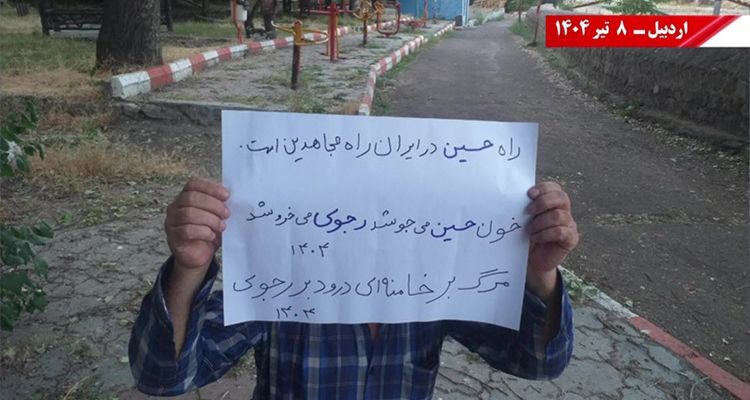 اردبیل ــ ۸ تیر ۱۴۰۴
راه حسین در ایران راه مجاهدین است.
خون حسین می جوشد رجوی می خروشد
۱۴۰۴
مرگ بر خامنه‌ای درود بر رجوی
۱۴۰۴